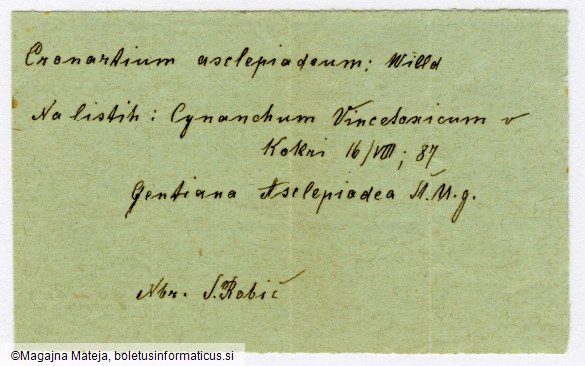 Cronartium asclepiadeum; Willd
Na listih: Cynanchum Vincetoxicum v
Kokri 16/VIII; 87
Gentiana Asclepiadea Š.M.g.
Nbr. S. Robič
©Magajna Mateja, boletusinformaticus.si